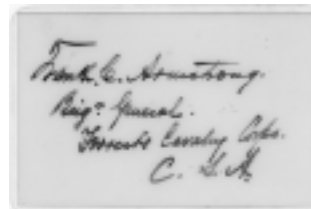 Frank C. Armstrong.
Brigr. General.
Forrests Cavalry Corps.
C. S. A.